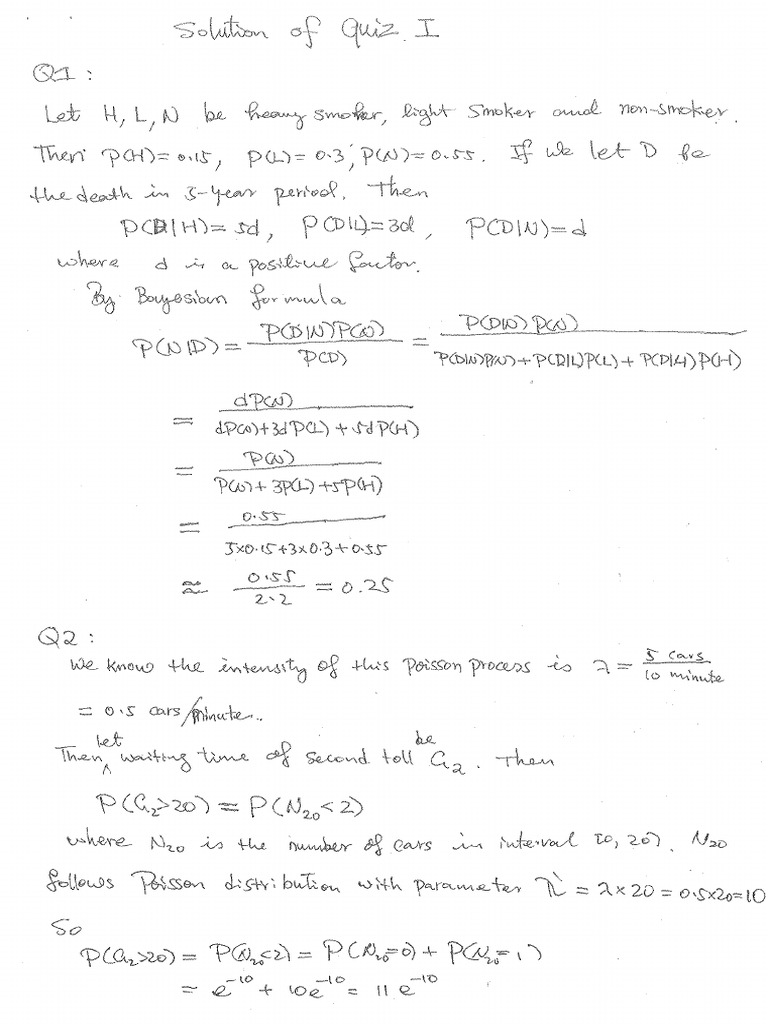 Solution of Quiz I
Q1:
Let H, L, N be heavy smoker, light smoker and non-smoker.
Then P(H)=0.15, P(L)=0.3, P(N)=0.55. If we let D be
the death in 3-year period. Then
P(D|H)=5d, P(D|L)=3d, P(D|N)=d
where d is a positive factor.
By Bayesian formula
P(N|D) = P(D|N)P(N) / P(D) = P(D|N)P(N) / P(D|N)P(N)+P(D|L)P(L)+P(D|H)P(H)
= dP(N) / dP(N)+3dP(L)+5dP(H)
= P(N) / P(N)+3P(L)+5P(H)
= 0.55 / 5×0.15+3×0.3+0.55
≅ 0.55 / 2.2 = 0.25
Q2:
We know the intensity of this Poisson process is λ = 5 cars / 10 minute
= 0.5 cars/minute.
Then let waiting time of second toll be G₂. Then
P(G₂>20) = P(N₂₀<2)
where N₂₀ is the number of cars in interval [0, 20). N₂₀
follows Poisson distribution with parameter λ' = λ×20 = 0.5×20=10
So
P(G₂>20) = P(N₂₀<2) = P(N₂₀=0) + P(N₂₀=1)
= e⁻¹⁰ + 10e⁻¹⁰ = 11e⁻¹⁰